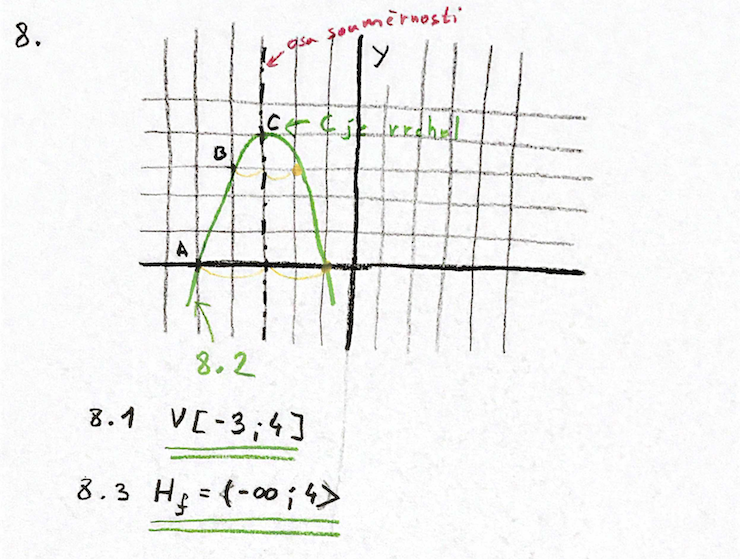 8.
osa souměrnosti
y
C ← C je vrchol
B
A
8.2
8.1 V[-3;4]
8.3 H_f = (-∞;4>